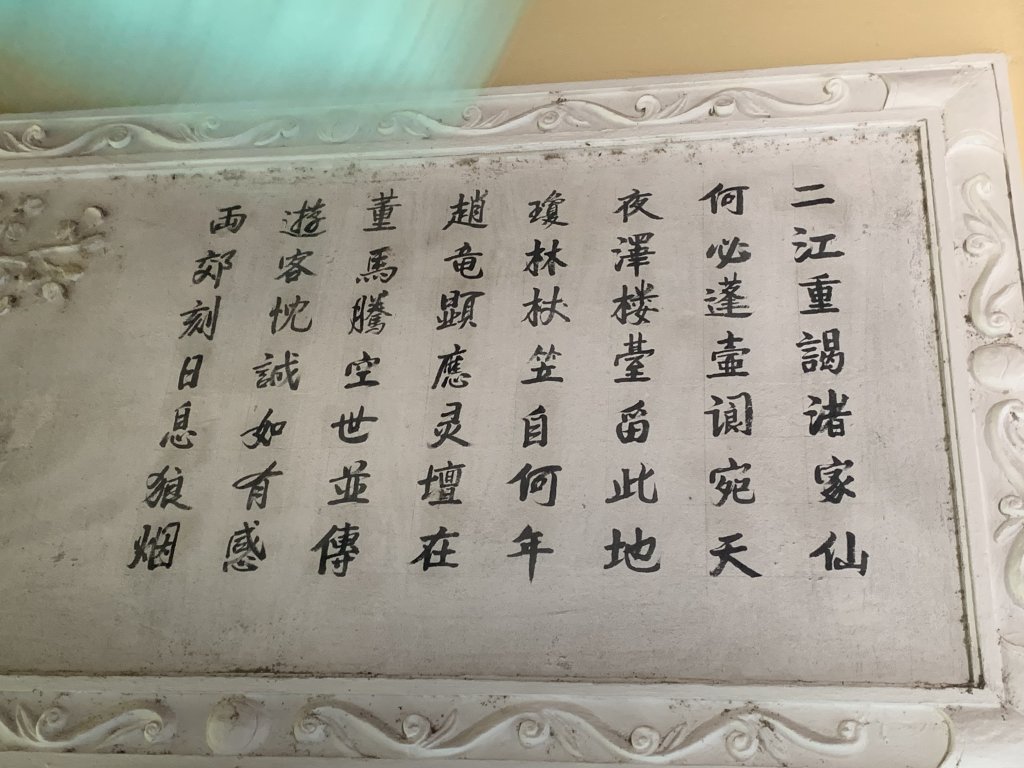 二江重謁诸家仙
何必蓬壷阆宛天
夜澤楼臺留此地
瓊林杖笠自何年
趙竜顕應灵壇在
董馬騰空世並傳
遊客忱誠如有感
両郊刻日息狼烟